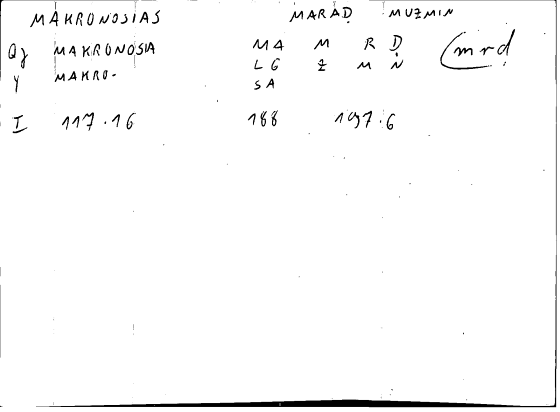 MAKRONOSIAS MARAḌ MUZMIN
Qg MAKRONOSIA MA M R Ḍ (mrḍ
Y MAKRO- LG Z M N
SA
I 117.16 188 197.6